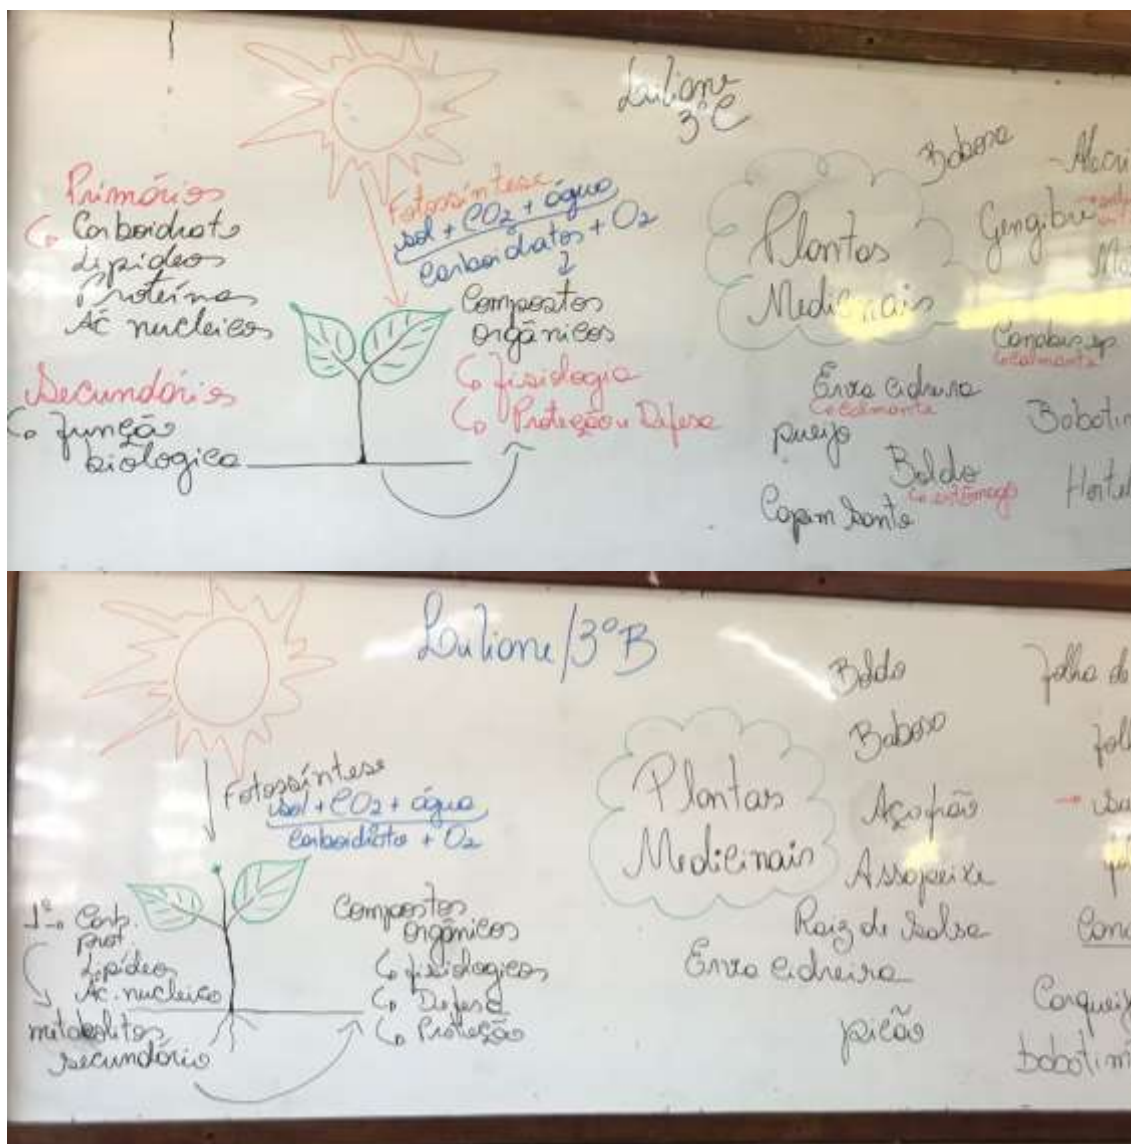 3ºC
Primários
Carboidrato
Lipídeos
Proteínas
Ác nucleicos
Secundários
função
biologica
Fotossíntese
sol + CO2 + água
carboidratos + O2
Compostos
orgânicos
fisiologia
Proteção e Defesa
Plantas
Medicinais
Babosa
Gengibre
calmante
Erva cidreira
calmante
Boldo
estômago
Capim Santo
/3ºB
Fotossíntese
sol + CO2 + água
carboidrato + O2
1º Carb.
prot.
Lipídeos
Ác. nucleico
metabolitos
secundário
Compostos
orgânicos
fisiologicos
Defesa
Proteção
Plantas
Medicinais
Boldo
Babosa
Açofrão
Assapeixe
Raiz de Salsa
Erva cidreira
picão